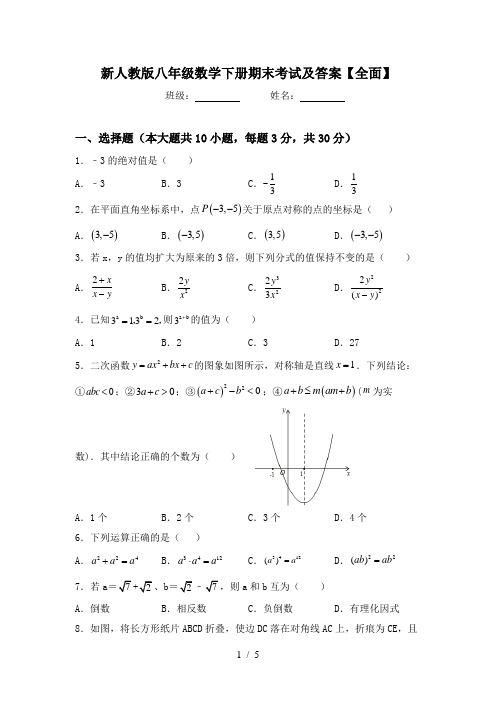 新人教版八年级数学下册期末考试及答案【全面】
班级: 姓名:
一、选择题（本大题共10小题，每题3分，共30分）
1．﹣3的绝对值是（ ）
A．﹣3 B．3 C．-1/3 D．1/3
2．在平面直角坐标系中，点P(-3,-5)关于原点对称的点的坐标是（ ）
A．(3,-5) B．(-3,5) C．(3,5) D．(-3,-5)
3．若x，y的值均扩大为原来的3倍，则下列分式的值保持不变的是（ ）
A．(2+x)/(x-y) B．2y/x² C．2y³/3x² D．2y²/(x-y)²
4．已知3ᵃ=1,3ᵇ=2,则3ᵃ⁺ᵇ的值为（ ）
A．1 B．2 C．3 D．27
5．二次函数y=ax²+bx+c的图象如图所示，对称轴是直线x=1．下列结论：
①abc<0；②3a+c>0；③(a+c)²-b²<0；④a+b≤m(am+b)(m为实
数)．其中结论正确的个数为（ ）
y
-1 O 1 x
A．1个 B．2个 C．3个 D．4个
6．下列运算正确的是（ ）
A．a²+a²=a⁴ B．a³·a⁴=a¹² C．(a³)⁴=a¹² D．(ab)²=ab²
7．若a＝√7+√2、b＝√2﹣√7，则a和b互为（ ）
A．倒数 B．相反数 C．负倒数 D．有理化因式
8．如图，将长方形纸片ABCD折叠，使边DC落在对角线AC上，折痕为CE，且
1 / 5